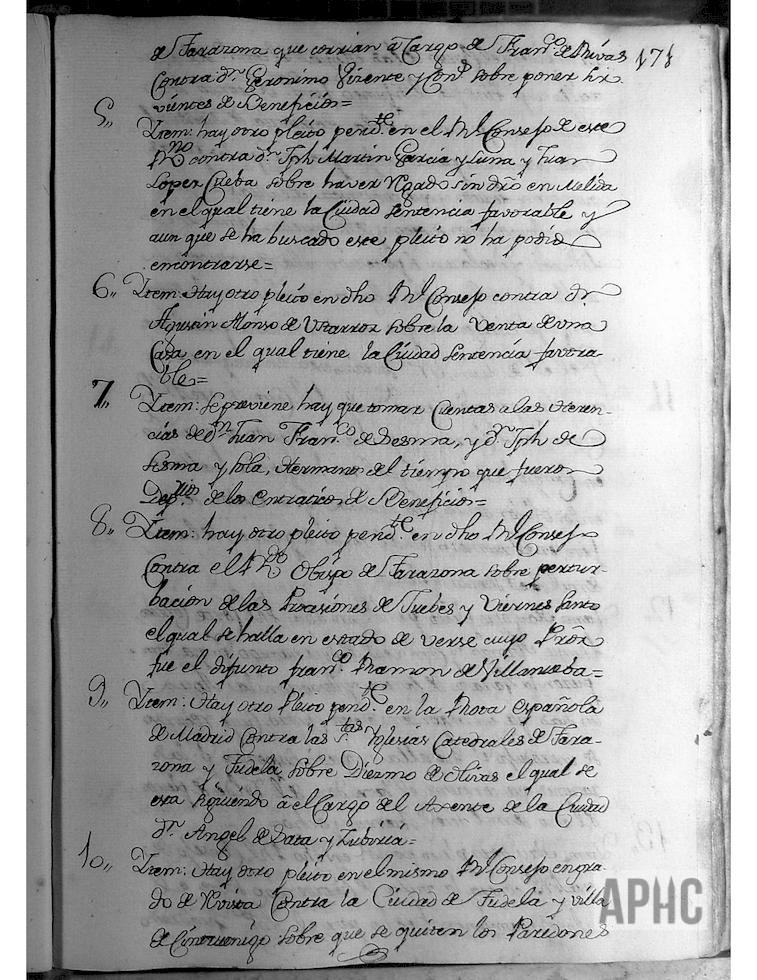 de Tarazona que corrian â Cargo de Fran.co de Rivas 171
Contra d.n Geronimo Vizente y Con.s sobre poner Sir
vientes de Beneficios=
5,, Ytem: hay otro pleito pend.te en el R.l Consejo de este
R.no contra d.n Jph Martin Garcia y Luna y Juan
Lopez Cueba sobre haver Regado sin dro en Melida
en el qual tiene la Ciudad sentencia favorable y
aun que se ha buscado este pleito no ha podido
encontrarse=
6,, Ytem: Hay otro pleito en dho R.l Consejo contra dn
Agustin Alonso de Ustarroz sobre la Venta de una
Casa en el qual tiene la Ciudad sentencia favora-
ble=
7,, Ytem: se previene hay que tomar Cuentas a las Heren-
cias de d.n Juan Fran.co de Sesma, y d.n Jph de
Sesma y Sola, Hermanos del tiempo que fueron
Dep.rios de los entraticos de Beneficios=
8,, Ytem: hay otro pleito pend.te en dho R.l Consejo
Contra el R.do Obispo de Tarazona sobre pertur-
bacion de las Prozesiones de Juebes y Viernes Santo
el qual se halla en estado de verse cuyo Prôr
fue el difunto fran.co Ramon de Villanueba=
9,, Ytem: Hay otro Pleito pend.te en la Rota española
de Madrid Contra las S.tas Yglesias Catedrales de Tara-
zona y Tudela sobre Diezmo de Olivas el qual se
esta siguiendo â el Cargo del Axente de la Ciudad
d.n Angel de Data y Zuboria=
10,, Ytem: Hay otro pleito en el mismo R.l Consejo en gra-
do de Revista Contra la Ciudad de Tudela y villa
de Cintruenigo sobre que se quiten los Paridones
APHC